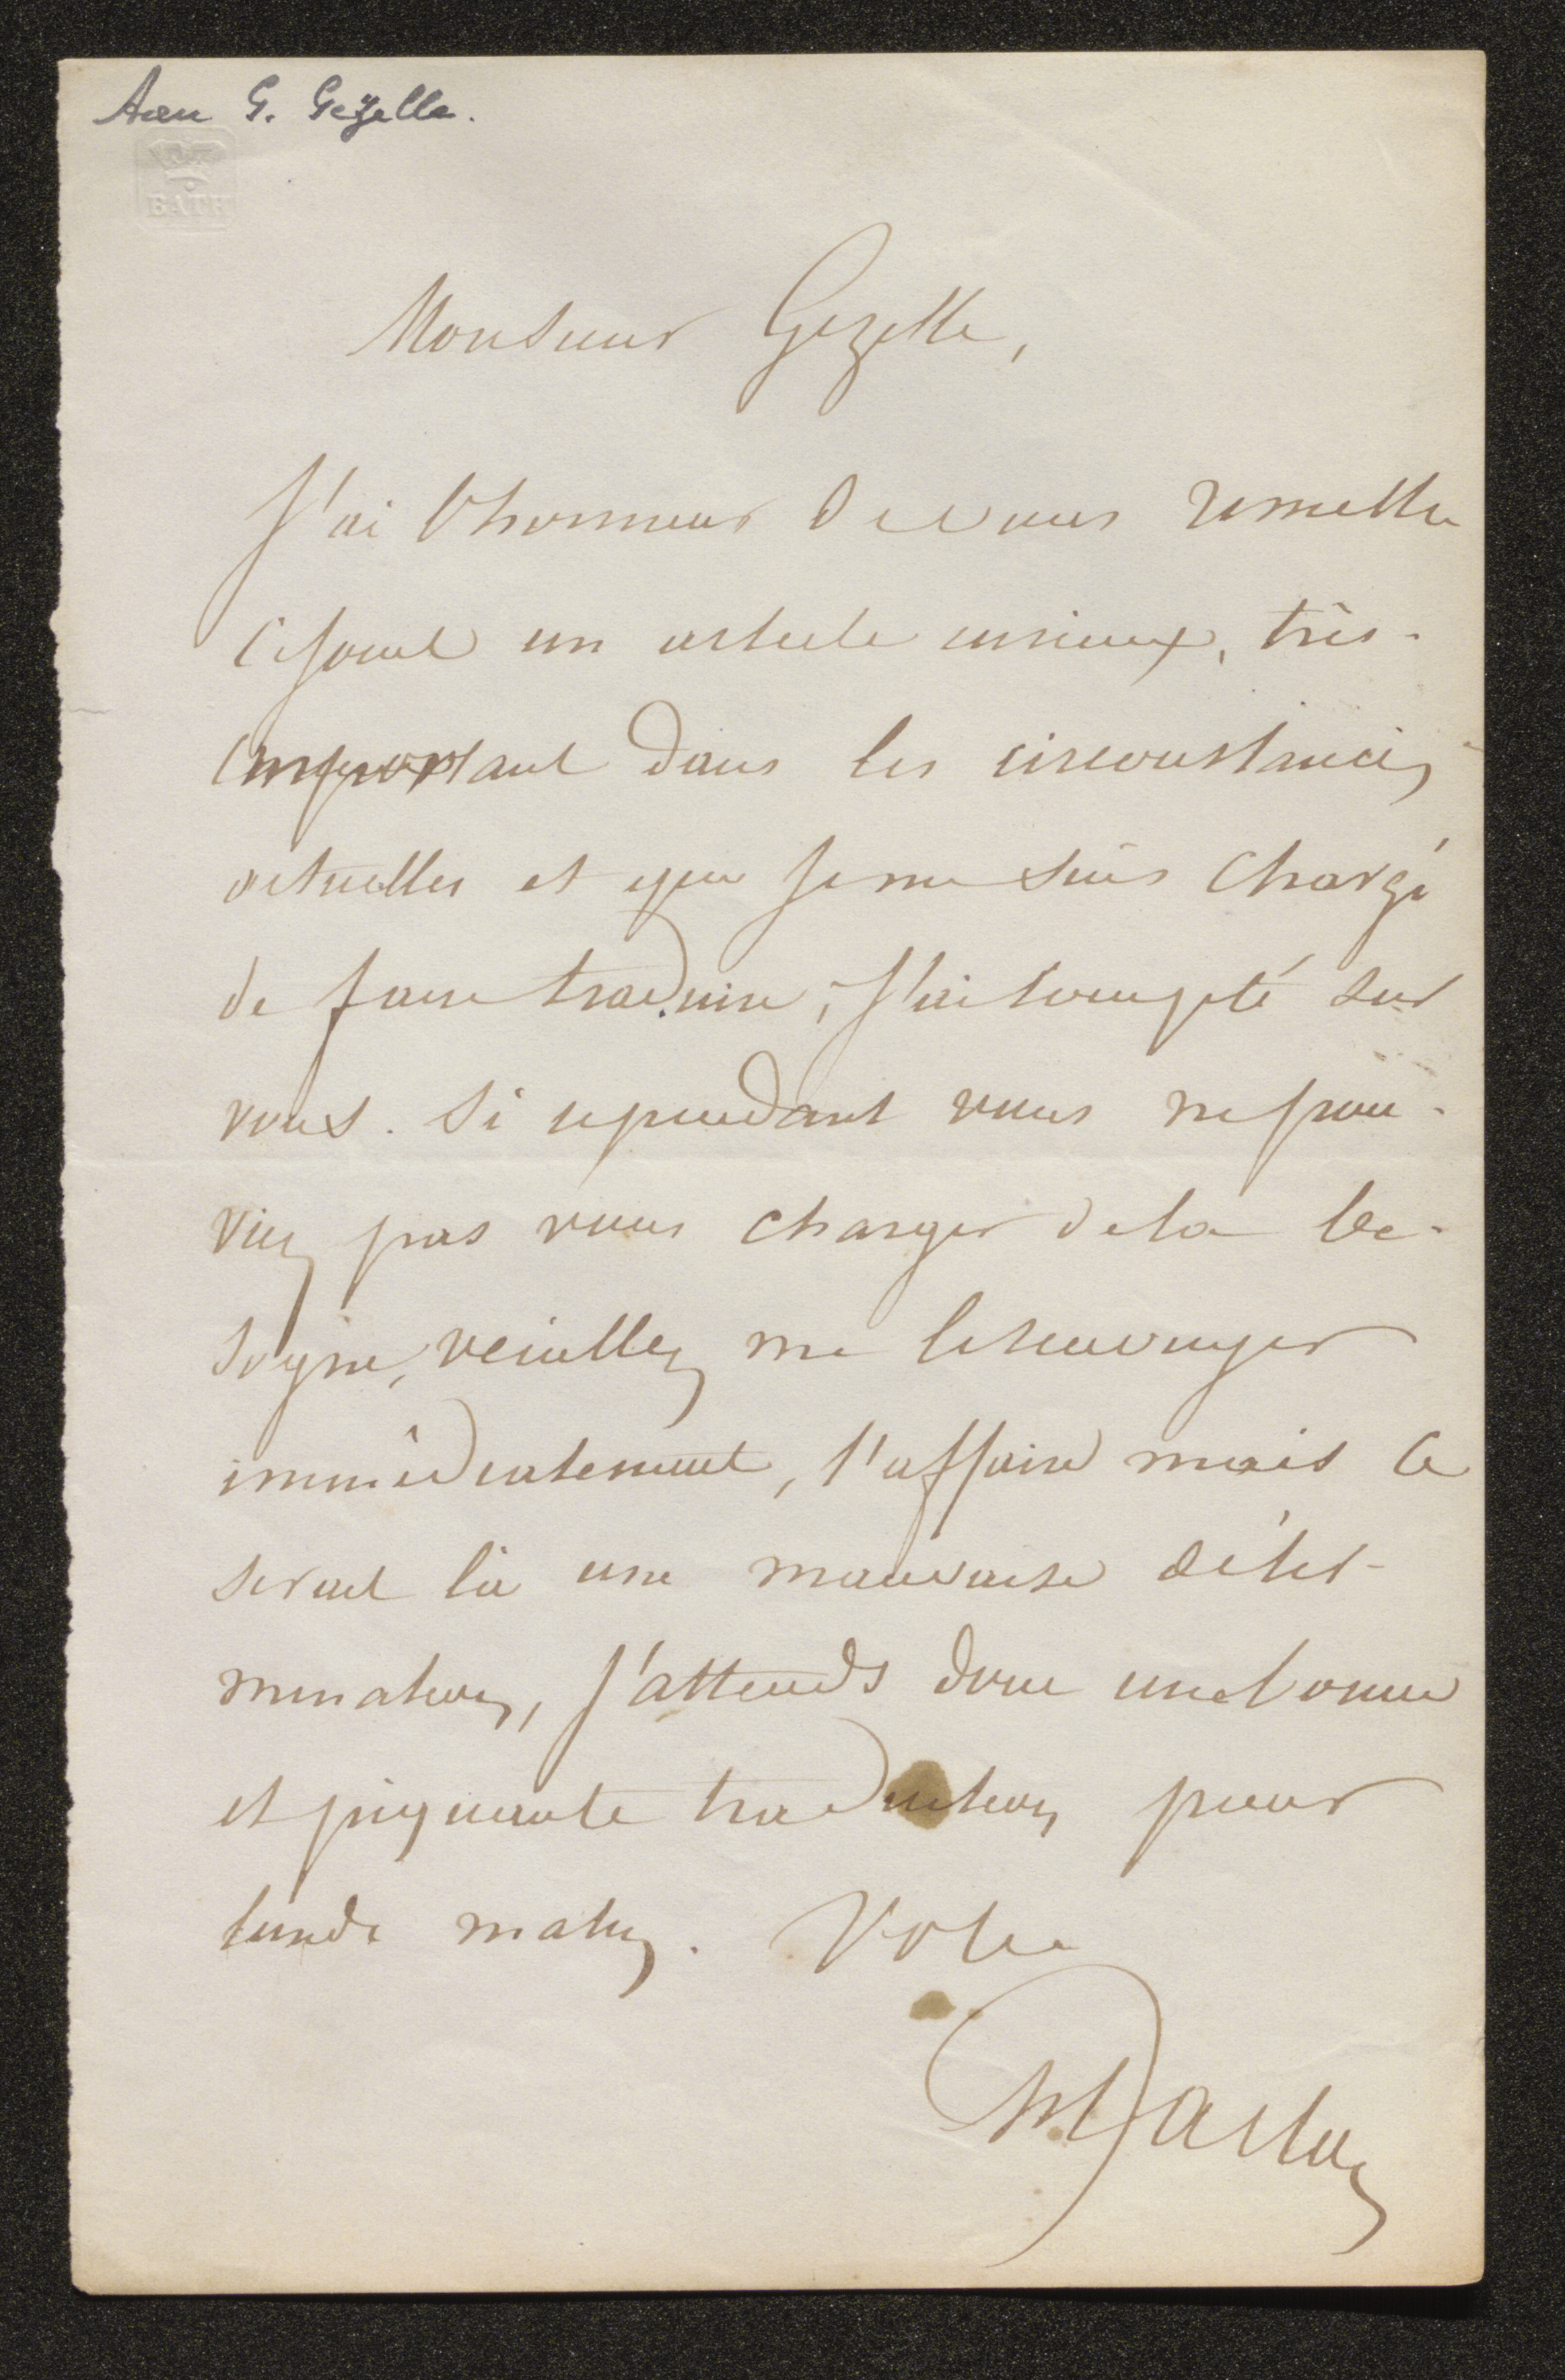 Aan G. Gezelle.
BATH
Monsieur Gezelle,
J'ai l'honneur de vous remettre
ci joint un article curieux, très-
important dans les circonstances
actuelles et que je me suis chargé
de faire traduire, J'ai compté sur
vous. Si cependant vous ne pou-
viez pas vous charger de la be-
sogne, veuillez me le renvoyer
immédiatement, l'affaire mais ce
serait là une mauvaise déter-
mination, j'attends donc une bonne
et piquante traduction pour
lundi matin. Votre